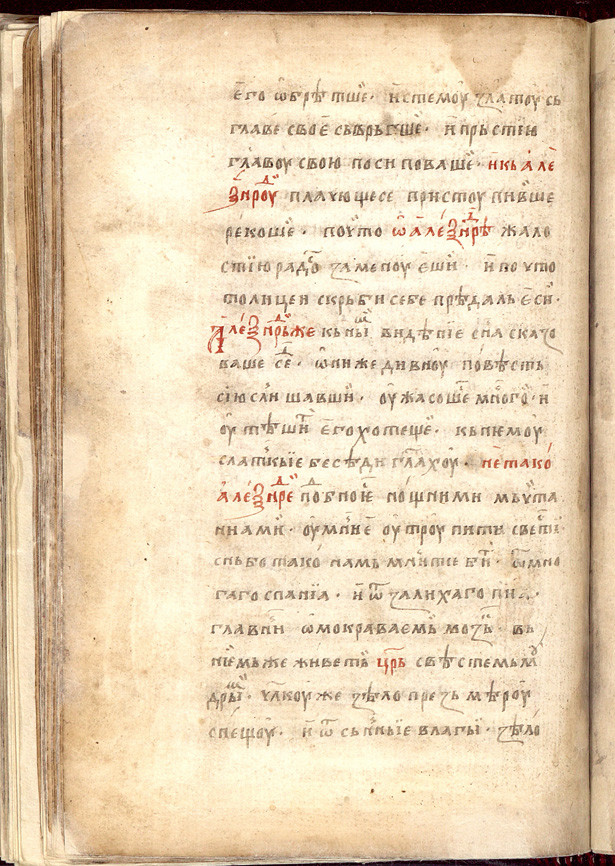 его ѡбрѣтше· и стемоу златоу съ
главѣ своѥ съврьгъше· и прьстїю
главоу свою посиповаше· и къ але
ѯⷩ҇дроу плачющесе пристоупивше
рекоше· почто ѡ алеѯⷩ҇дре жало
стїю радоⷭ҇ заменоуѥши· и въ что
толицеи скрьби себе прѣдаль ѥси·
Алеѯⷩ҇дрь же къ ниⷨ видѣнїе сна сказо
ваше сⷷ· ѡни же дивноу повѣсть
сїю слишавши· оужасоше много· и
оутѣшити его хотеще· къ немоу
слаткыѥ бесѣди глⷶхоу· не тако
алеѯⷩ҇дре подобноѥ нощними мьчта
нїами· оумнѥ оутроу пити светⷷ·
снь бо тако намь мнитсе бити· ѿ мно
гаго спанїа· и ѿ залихаго пиⷩ҇а·
главни ѡмокраваемь мозⷢ· въ
нѥмьже живеть црⷭ҇ь свѣстемь мⷹ
дриⷨ· чл҃коу же зѣло презь мѣроу
спещоу· и ѿ сьнныѥ влагы· зѣло